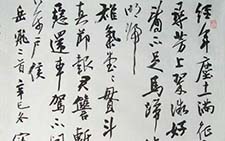 經年塵土滿征
尋芳上翠微好
看不足馬蹄
明歸
雄氣堂堂貫斗
真節報君讐斬
惡還車駕不問
萬戶侯
岳飛二首辛巳冬